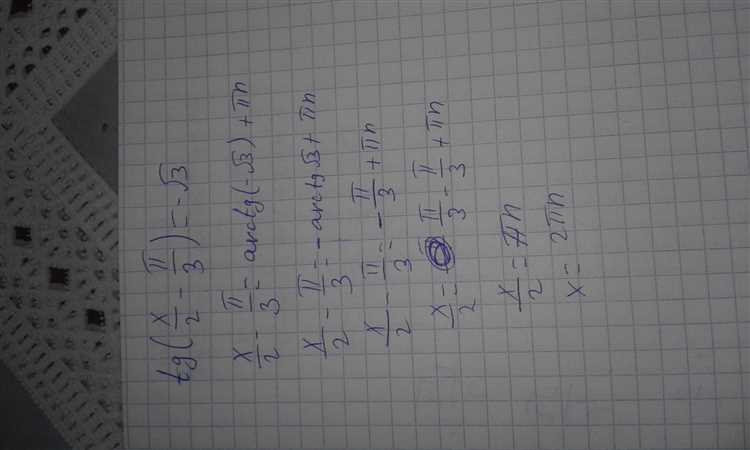 tg(x/2 - π/3) = -√3
x/2 - π/3 = arctg(-√3) + πn
x/2 - π/3 = -arctg√3 + πn
x/2 - π/3 = -π/3 + πn
x/2 = π/3 - π/3 + πn
x/2 = πn
x = 2πn